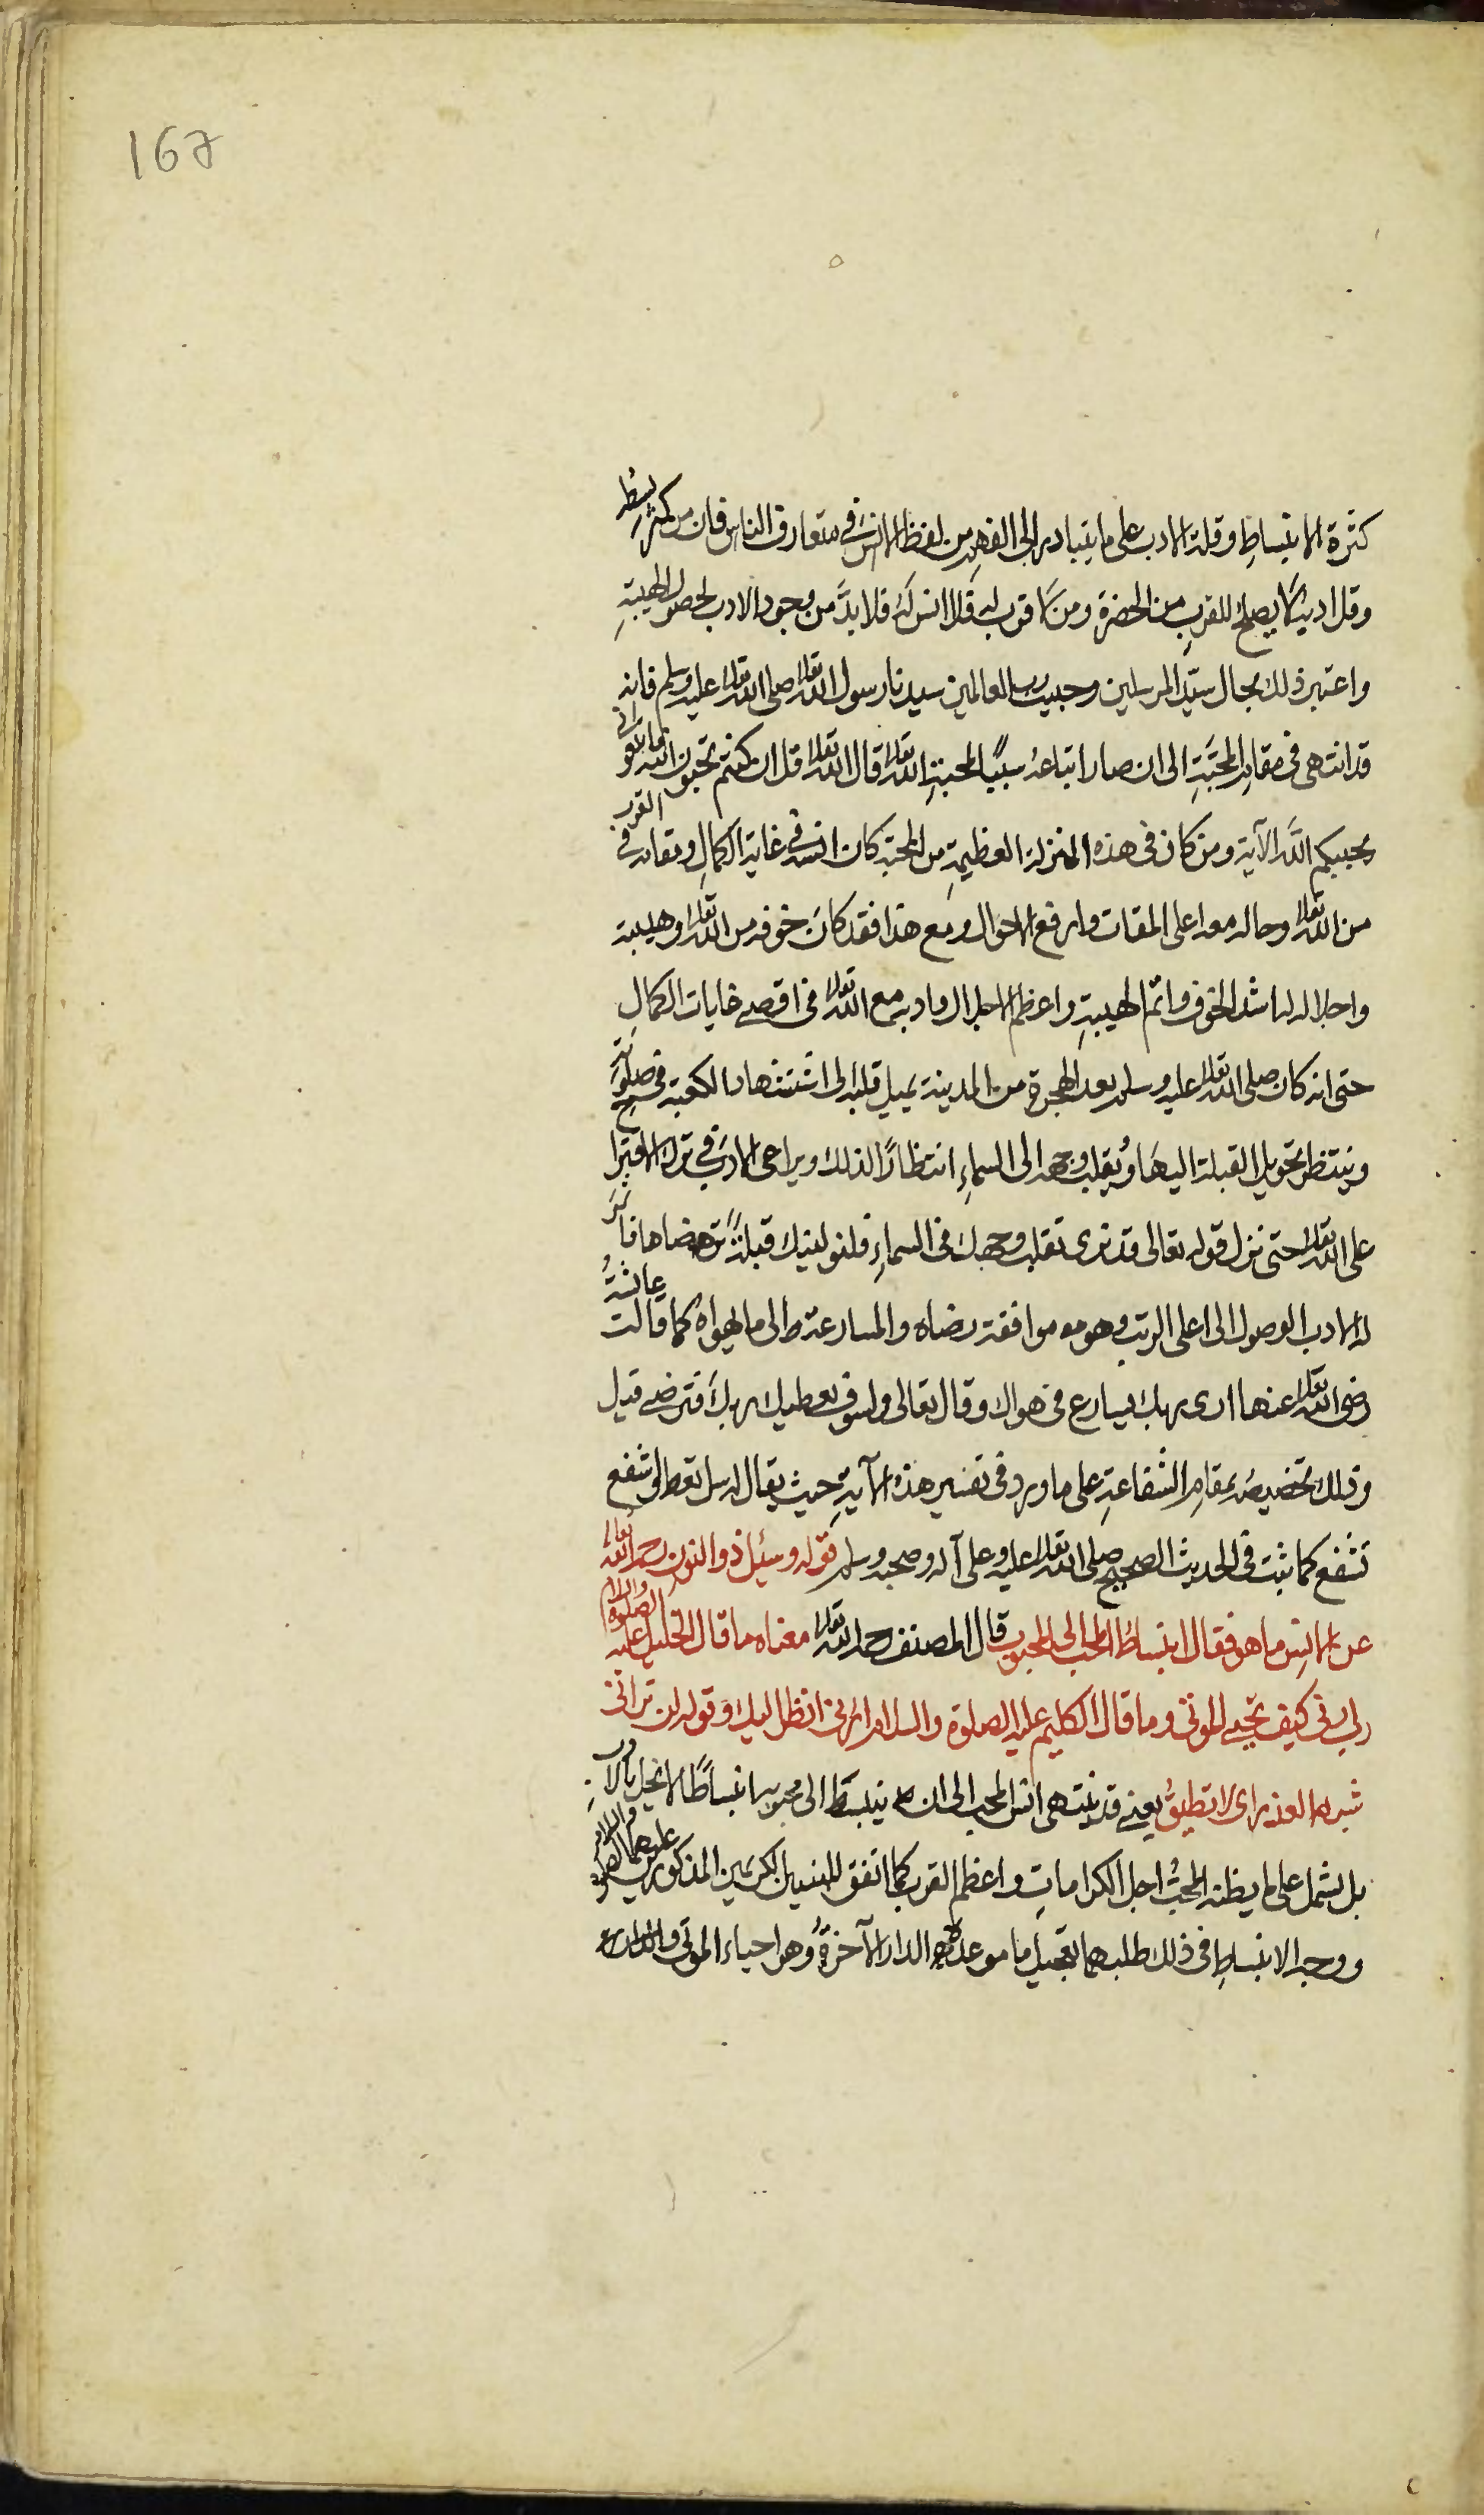 167
كثرة الانبساطِ وقلة الادب على ما يتبادر الى الفهم من لفظ الانس فى متعارف الناس فان من كثر بسطه
وقل ادبه لا يصلح للقربِ من الحضرة ومن لا قرب له فلا انس له فلا بدَّ من وجود الادب لحصول الهيبةِ
واعتبر ذلك بحال سيّد المرسلين وحبيب رب العالمين سيدنا رسول الله تعالى صلى الله تعالى عليه وسلم فانه
قد انتهى فى مقام المحبّةِ الى ان صار اتباعهُ سببًا لمحبةِ الله تعالى قال الله تعالى قل ان كنتم تحبون الله فاتبعونى
يحببكم اللّه الآية ومن كان فى هذه المنزلة العظيمةِ من المحبة كان انسه فى غاية الكمالِ ومقامه فى القرب
من الله تعالى وحاله معه اعلى المقامات وارفع الاحوال ومع هذا فقد كانَ خوفه من الله تعالى وهيبته
واجلاله له اشد الخوف واتم الهيبةِ واعظم الاجلال وادبه مع الله تعالى فى اقصى غايات الكمالِ
حتى انه كان صلى الله تعالى عليه وسلم بعد الهجرة من المدينة يميل قلبه الى الكعبة فى صلوته
وينتظر تحويل القبلة اليهَا ويُقلب وجهه الى السماءِ انتظارًا لذلك ويراعى الادب فى ترك الاقتراح
على الله تعالى حتى نزل قوله تعالى قد نرى تقلب وجهك فى السماءِ فلنولينك قبلةً ترضاها
له الادب الوصول الى اعلى الرتب وهو موافقة رضاه والمسارعة الى ما يهواه كما قالت عائشةُ
رضى الله تعالى عنها ارى ربك يسارع فى هواك وقال تعالى ولسوف يعطيك ربك فترضى قيل
وذلك تخصيصه بمقامِ الشفاعةِ على ما ورد فى تفسير هذه الآيةِ حيث يقال له سل تعط واشفع
تشفع كما ثبت فى الحديث الصحيح صلى الله تعالى عليه وعلى آله وصحبه وسلم قوله وسئل ذو النون رحمه الله تعالى
عن الانسِ ما هو فقال انبساطُ المحب الى المحبوب قال المصنف رحمه الله تعالى معناه ما قال الخليل عليه الصلوة والسلام
رب ارنى كيف تحيى الموتى وما قال الكليم عليه الصلوة والسلام ارنى انظر اليك وقوله لن ترانى
شبه العذر اى لا تطيقُ يعنى قد ينتهى انس المحب الى ان ينبسط الى محبوبه انبساطًا لا يخل بالادب
بل يشمل على ما يظنه المحبُّ اجل الكراماتِ واعظم القرب كما اتفق للنبيين الكريمين المذكورين عليهما الصلوة والسلام
ووجه الانبساطِ فى ذلك طلبهما تعجيل ما موعده الدار الآخرةُ وهو احياء الموتى